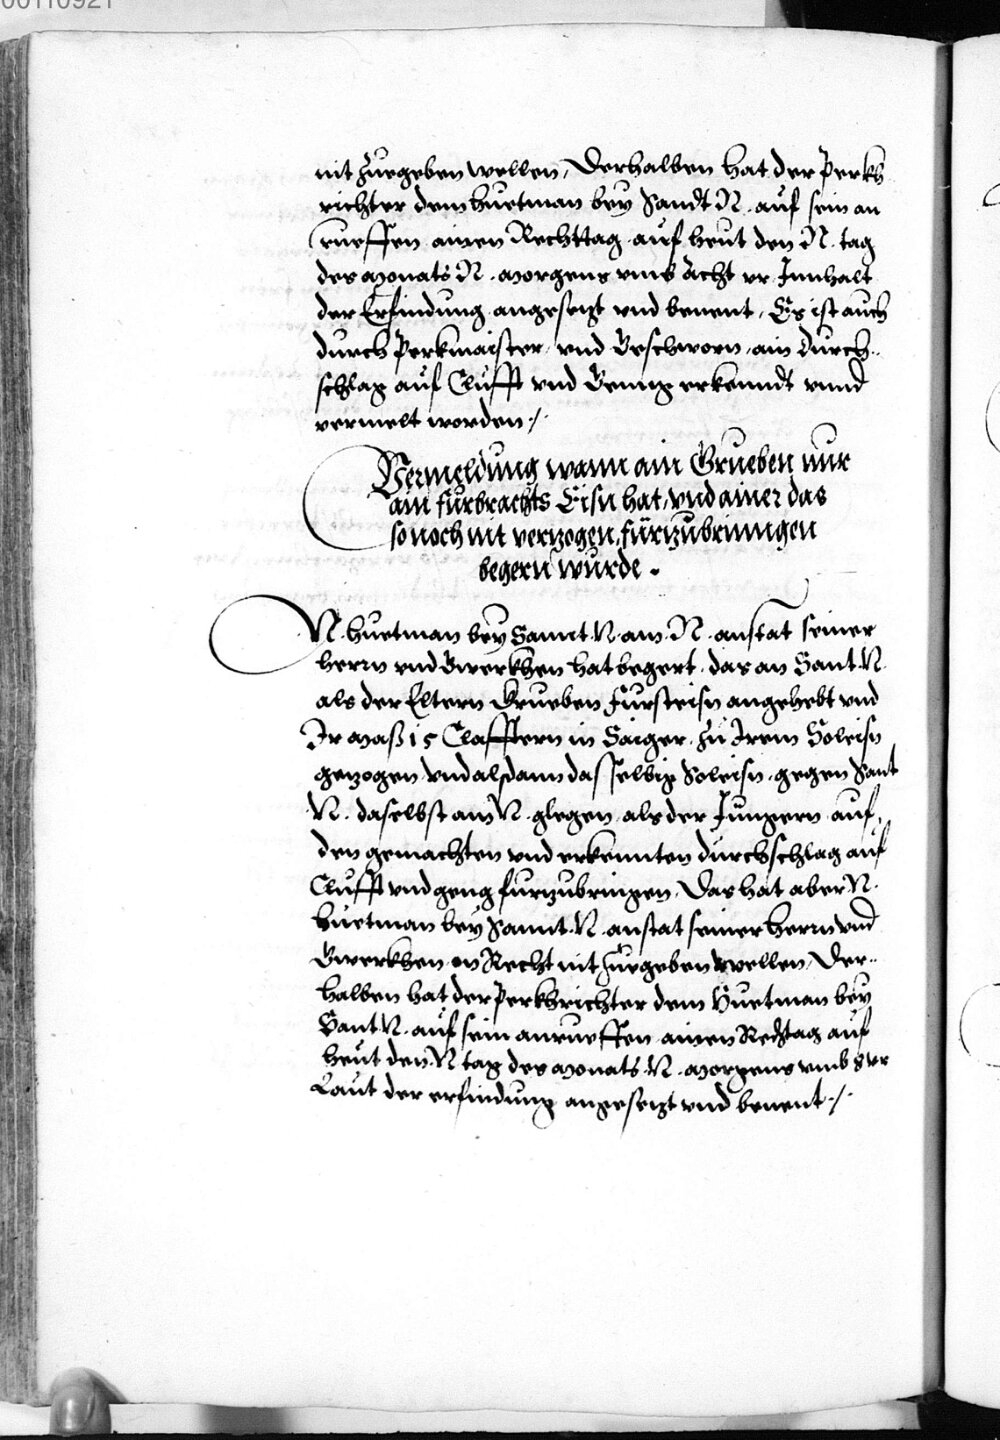 00110921
nit zuegeben wellen, Derhalben hat der Perkh
richter dem huetman bey Sandt N. auf sein an
rueffen ainen Rechttag auf heut den N. tag
des Monats N. Morgens umb Acht ur Innhalt
der Erfindung angesetzt und benent, Es ist auch
durch Perkmaister und Geschworn ain durch-
schlag auf Clufft und Genng erkenndt unnd
vermelt worden ./.
Vermeldung wann ain Grueben nur
ain furbrachts Eisn hat, und ainer das
so noch nit verzogen, fürzubrinngen
begern wurde.
N. huetman bey Sannt N. am N. anstat seiner
herrn und Gwerkhen hat begert, das an Sant N.
als der Eltern Grueben Fursteisn angehebt und
Ir Maß 15 Clafftern in Saiger zu Irem Soleisn
gezogen und alsdann dasselbig Soleisn gegen Sant
N. daselbst am N. glegen als der Jungern auf
den gemachten und erkennten durchschlag auf
Clufft und geng furzubringen, Das hat aber N.
huetman bey Sannt N. anstat seiner herrn und
Gwerkhen on Recht nit zuegeben wellen, Der-
halben hat der Perkhrichter dem Huetman bey
Sant N. auf sein anrueffen ainen Rechtag auf
heut den N tag des Monats N. Morgens umb 8 ur
Laut der erfindung angesetzt und benent ./.